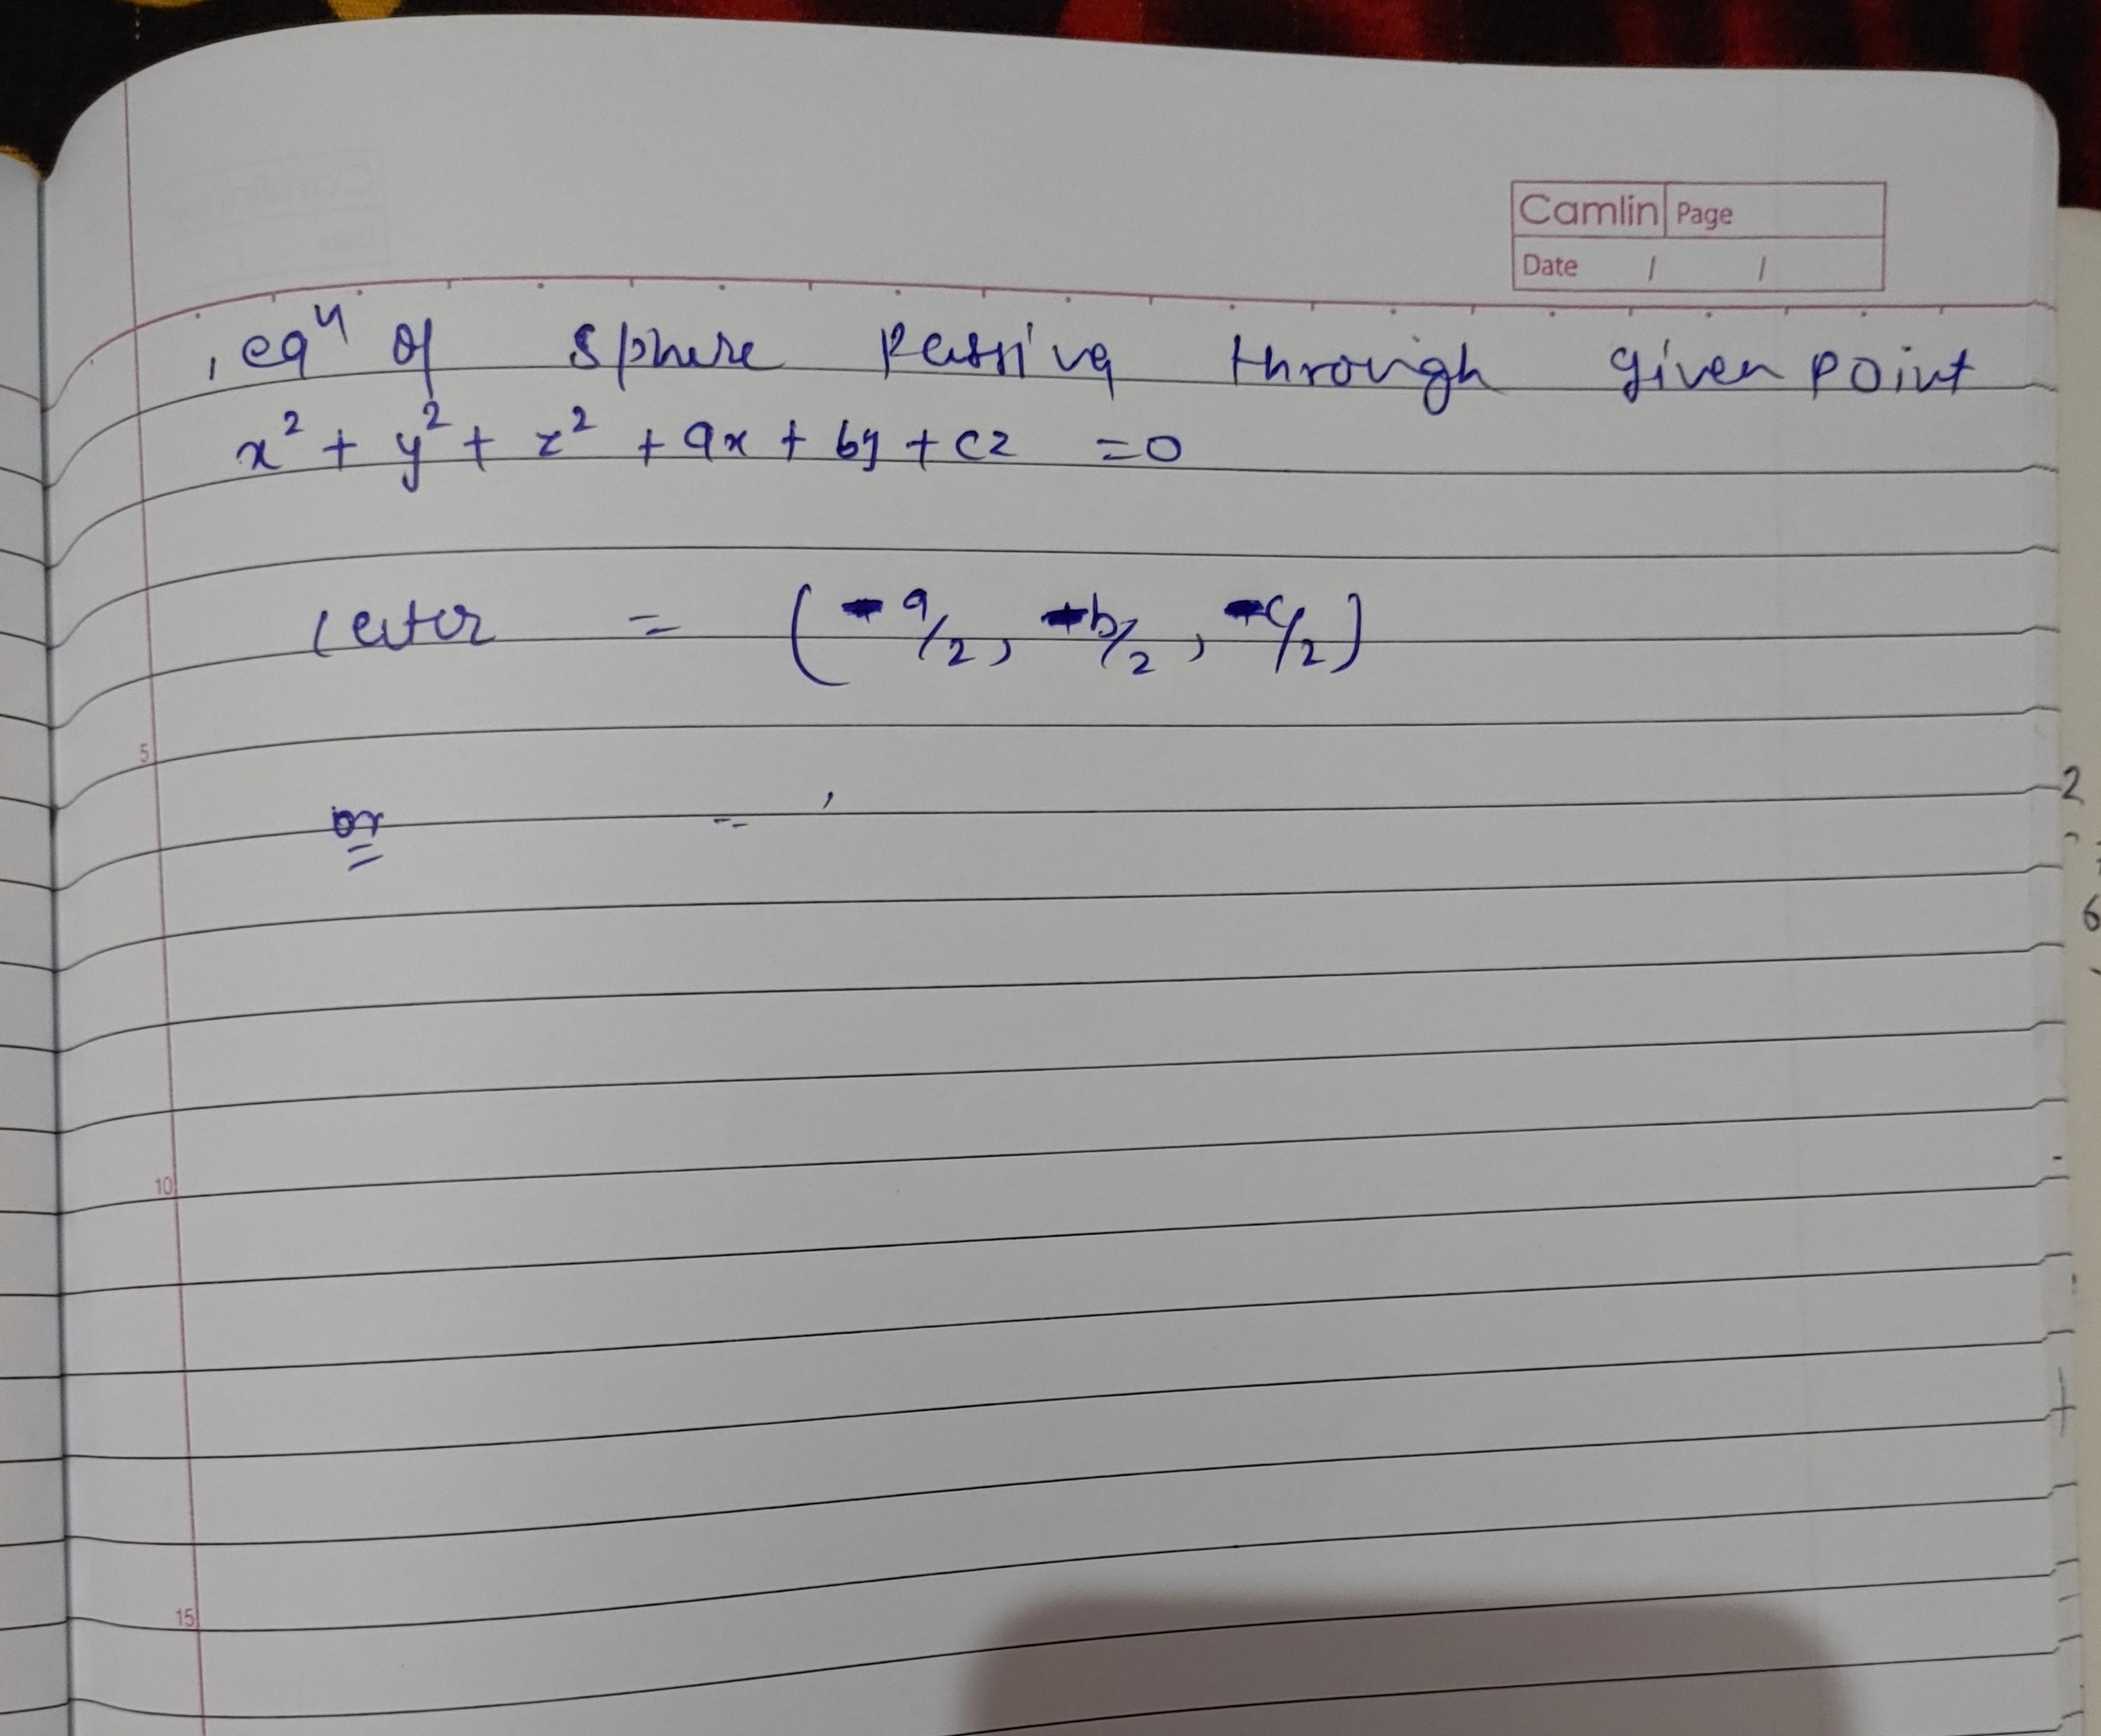 Camlin Page
Date / /
, eqn of Sphere Passing through given point
x² + y² + z² + ax + by + cz = 0
center = (-a/2, -b/2, -c/2)
5
or = ,
10
15
2
6